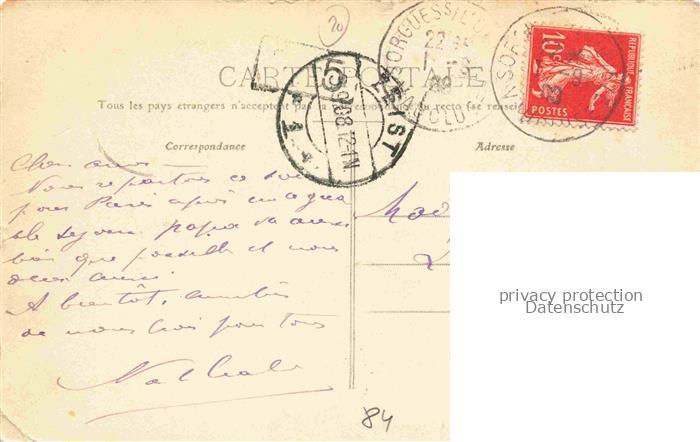 20
CARTE POSTALE
Tous les pays étrangers n'acceptent pas la correspondance au recto (se renseigner
Correspondance
Adresse
SORGUES S/L'OU
VAUCLUSE
ZEIST
5 9 08 12-1N
* 1 *
10c
RÉPUBLIQUE FRANÇAISE
POSTES
Chers amis
Nous repartons ce soir
pour Paris après un agréa
ble séjour papa va aussi
bien que possible et nous
deux aussi.
A bientôt, amitiés
de nous trois pour tous
Nathalie
Mad
84
privacy protection
Datenschutz